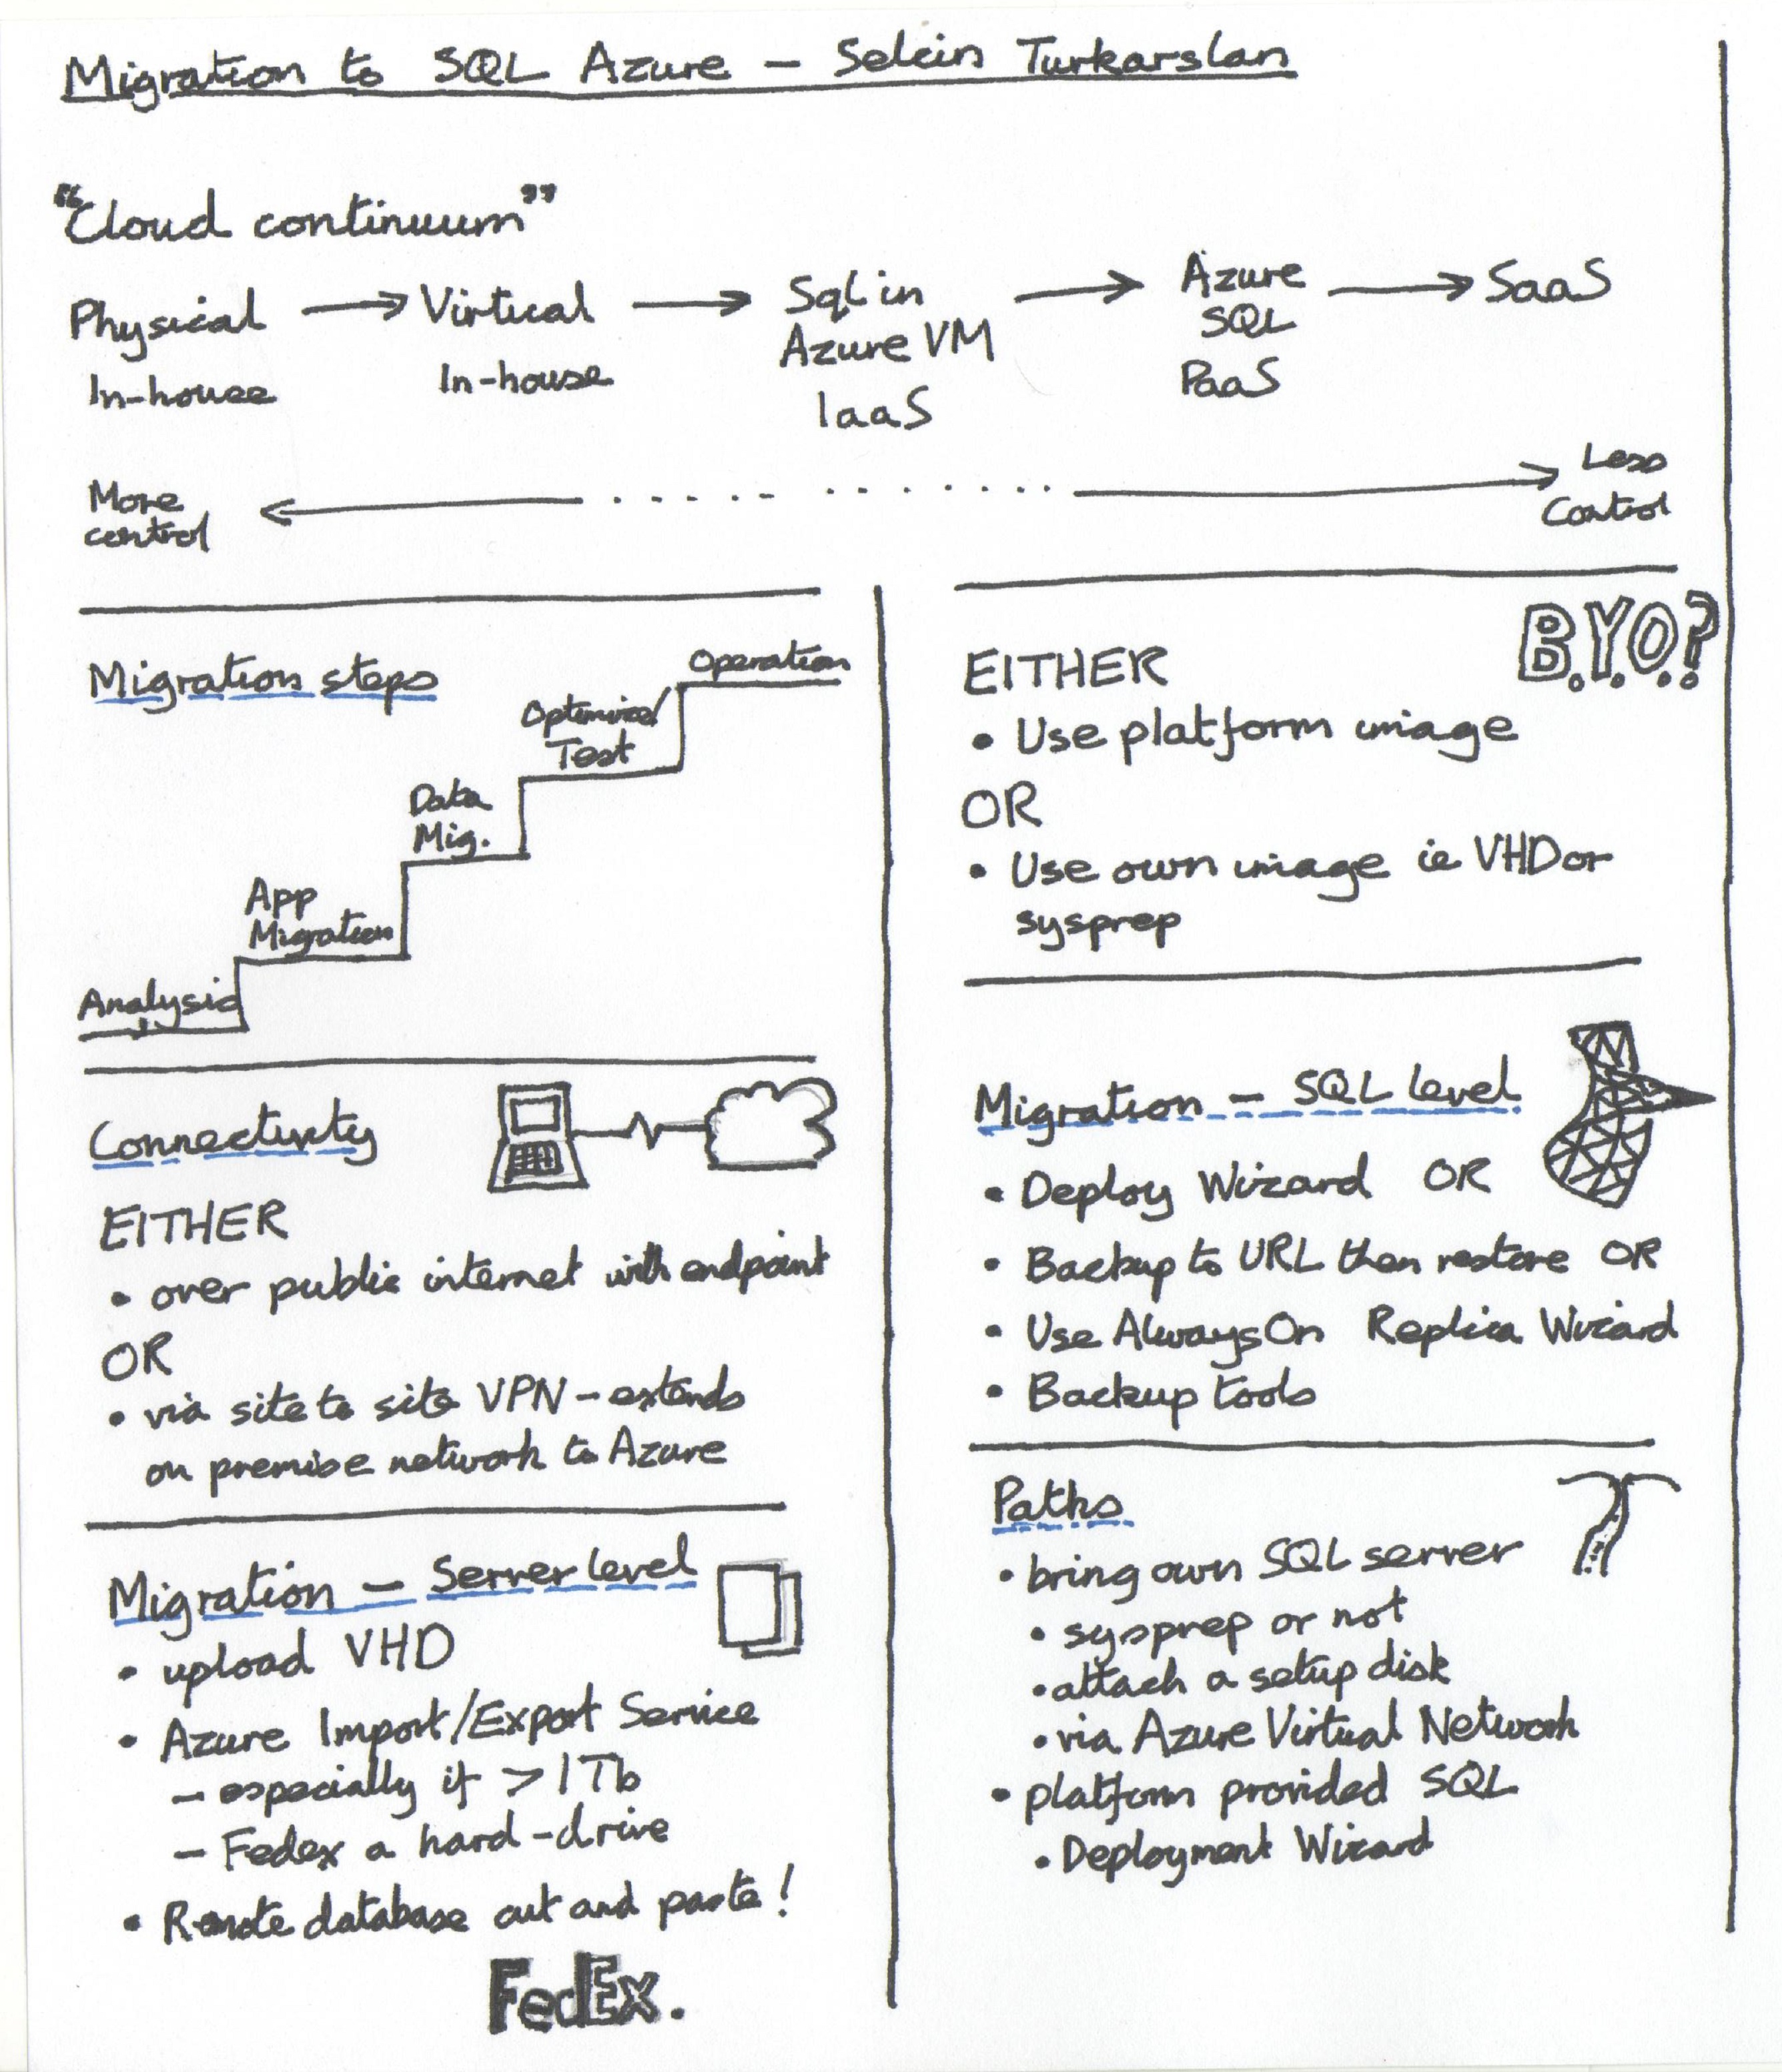 Migration to SQL Azure - Selcin Turkarslan
"Cloud continuum"
Physical → Virtical → Sql in → Azure → SaaS
In-house In-house Azure VM SQL
IaaS PaaS
More control
Less Control
Migration steps
Operation
Optimize/
Test
Data
Mig.
App
Migration
Analysis
Connectivity
EITHER
• over public internet with endpoint
OR
• via site to site VPN - extends
on premise network to Azure
Migration - Server level
• upload VHD
• Azure Import/Export Service
- especially if > 1Tb
- Fedex a hard-drive
• Remote database cut and paste!
FedEx.
B.Y.O.?
EITHER
• Use platform image
OR
• Use own image ie VHD or
sysprep
Migration - SQL level
• Deploy Wizard OR
• Backup to URL then restore OR
• Use AlwaysOn Replica Wizard
• Backup tools
Paths
• bring own SQL server
• sysprep or not
• attach a setup disk
• via Azure Virtual Network
• platform provided SQL
• Deployment Wizard